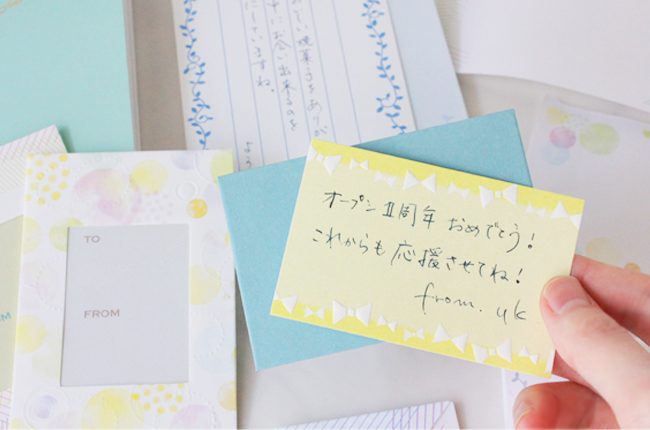 しい焼菓子をありが
中にお会い出来るのを
にしていますね。
TO
FROM
オープンⅡ周年 おめでとう!
これからも応援させてね!
from. uk